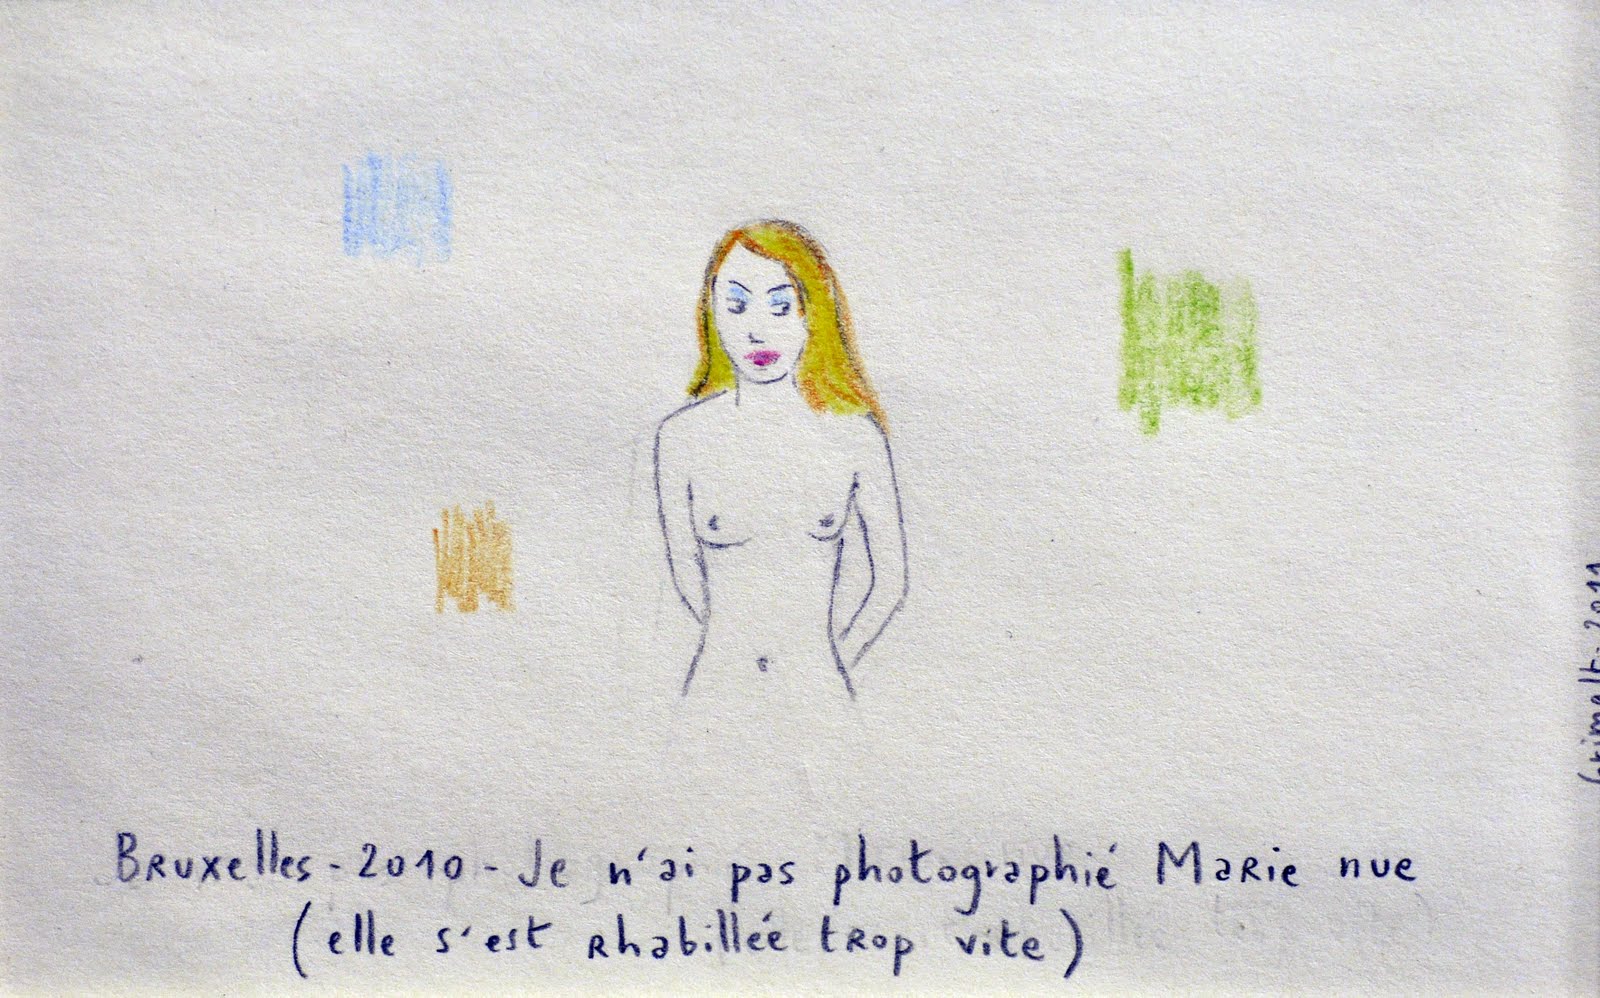 Bruxelles - 2010 - Je n'ai pas photographié Marie nue
(elle s'est rhabillée trop vite)
2011